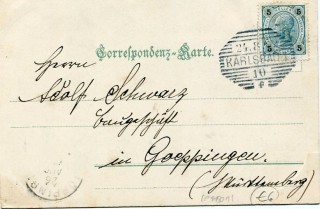 Correspondenz-Karte.
5 5
24.8
KARLSBAD
10
Herrn
Adolf Schwarz
Baugeschäft
in Goeppingen.
(Württemberg)
£6